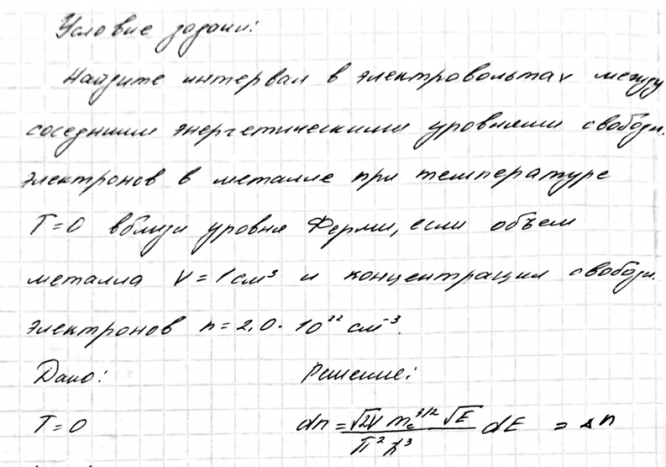 Условие задачи:
Найдите интервал в электровольтах между
соседними энергетическими уровнями свободн.
электронов в металле при температуре
T=0 вблизи уровня Ферми, если объем
металла V = 1 см³ и концентрация свободн.
электронов n = 2,0 · 10²² см⁻³.
Дано: Решение:
T=0 dn = √2V mₑ^3/2 √E / π² ħ³ dE = Δn